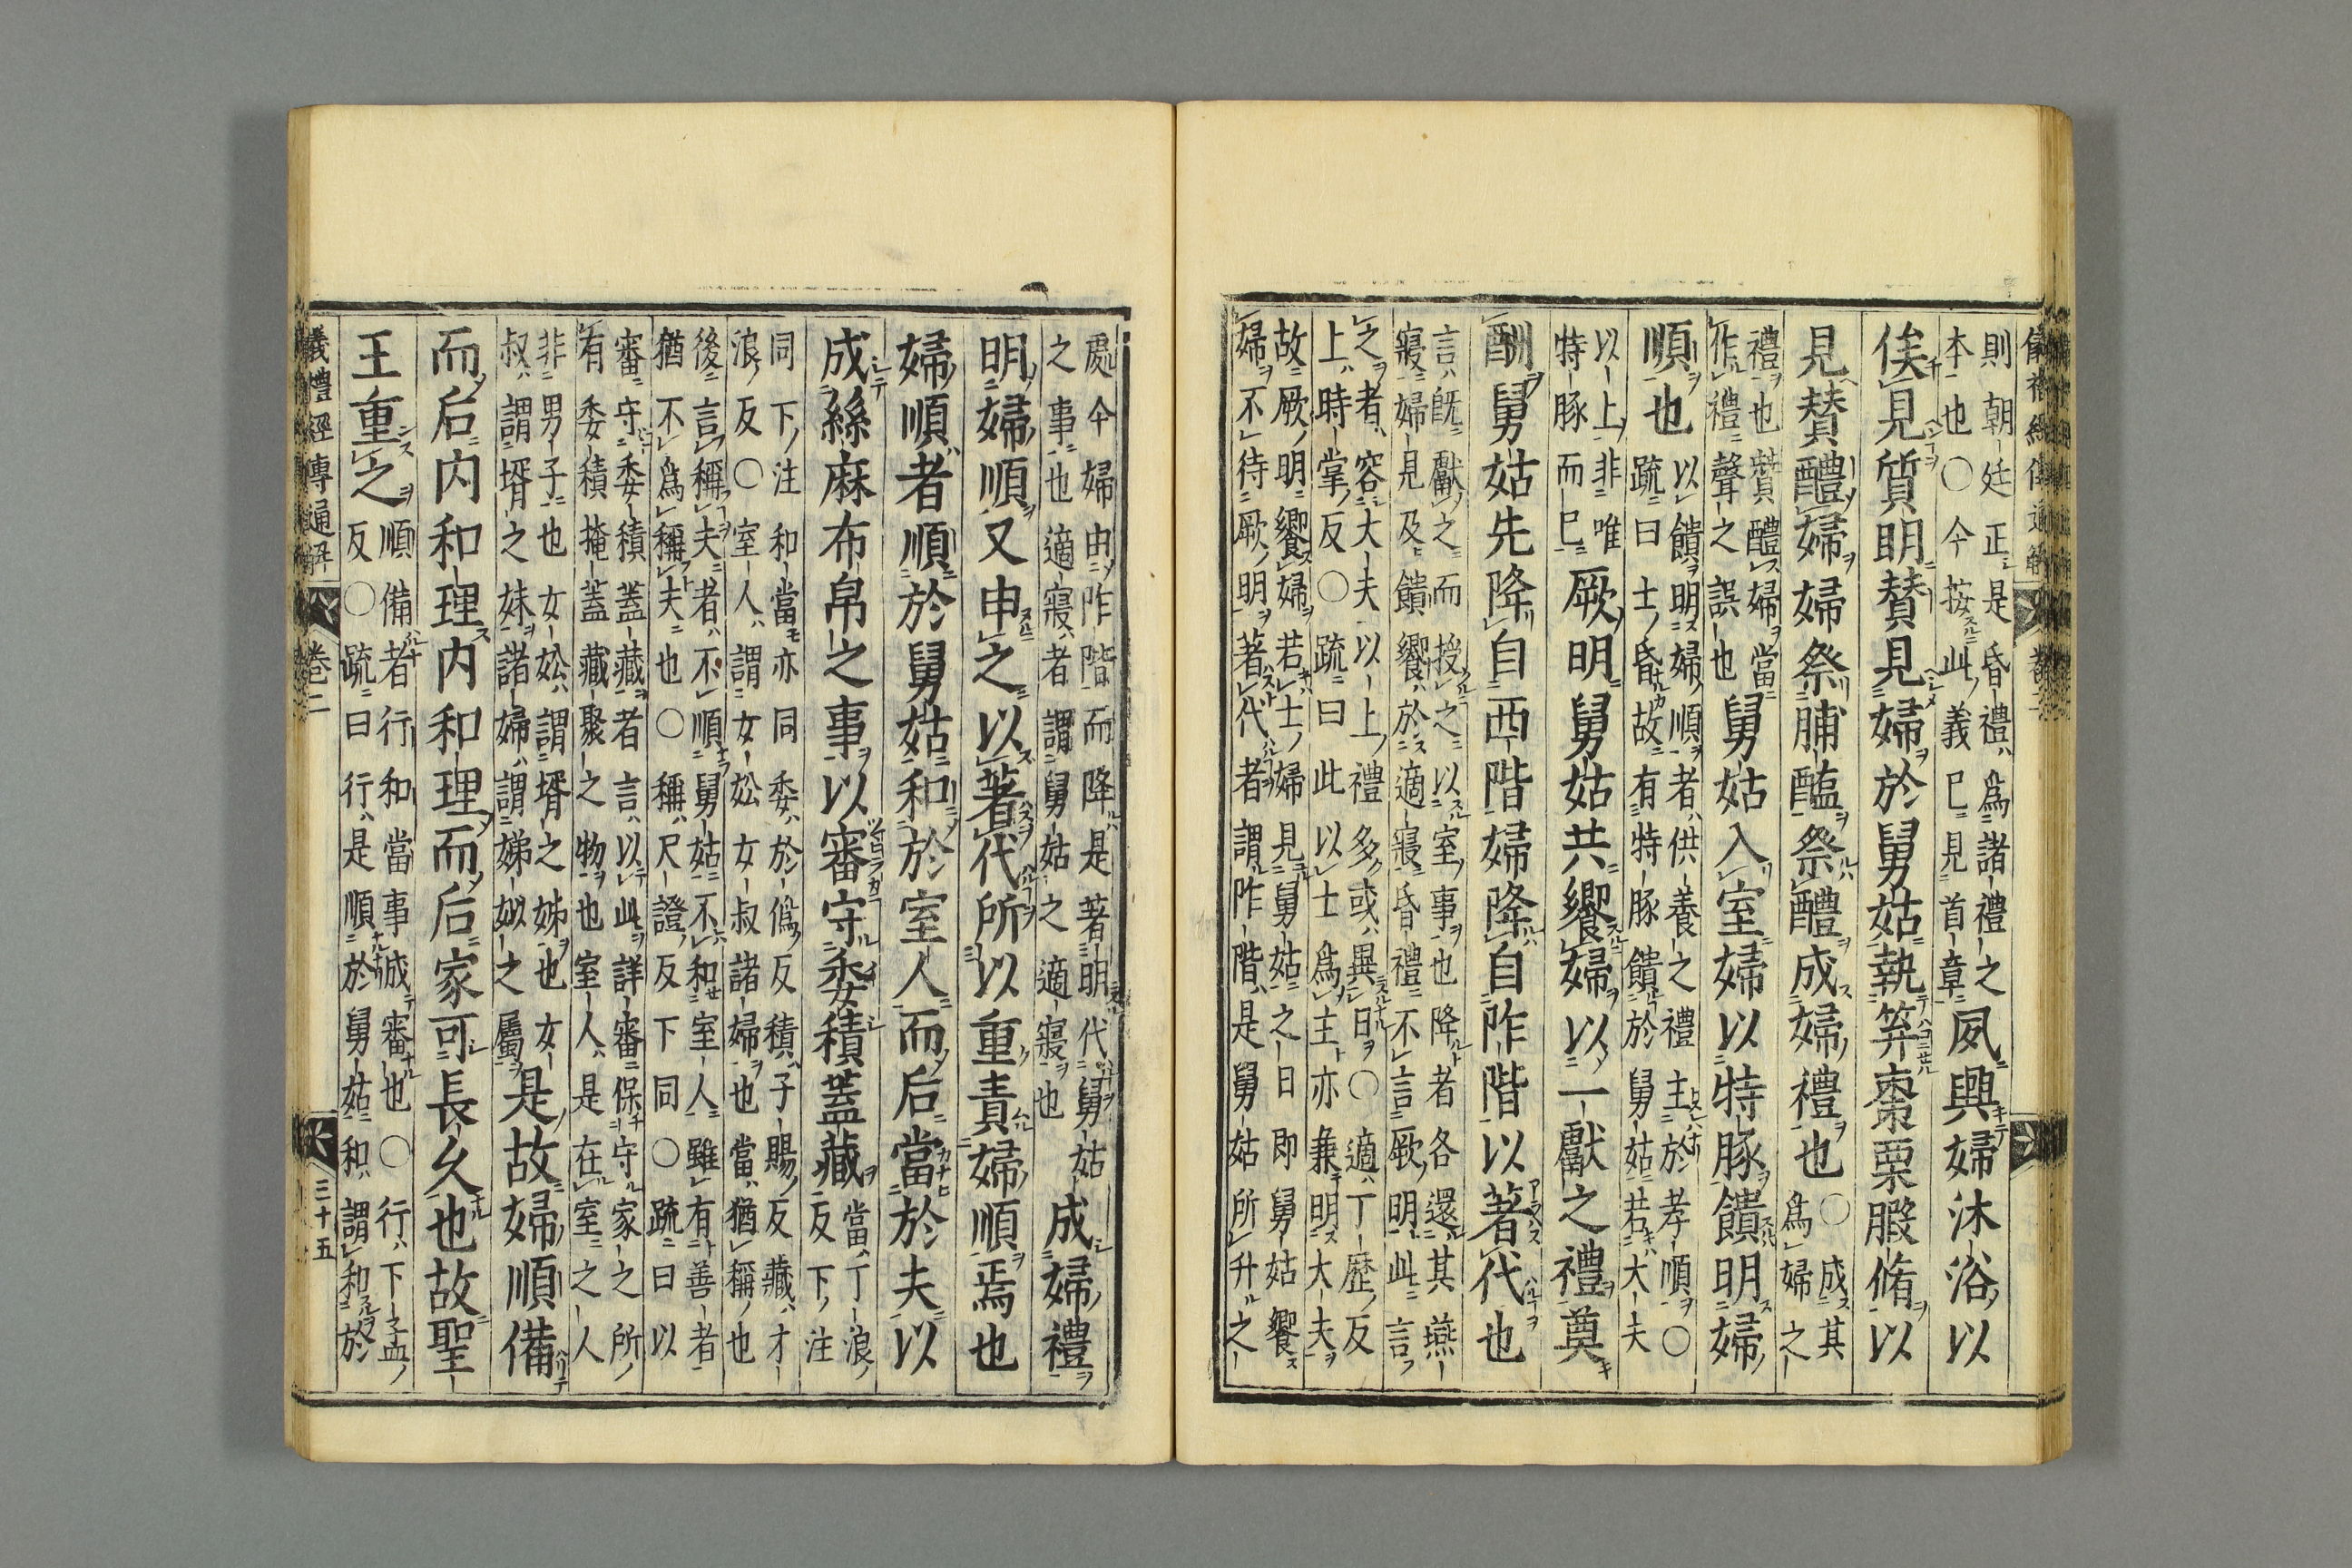 儀禮經傳通解
則朝廷正是昏禮爲諸禮之
本也○今按此義已見首章
夙興婦沐浴以
俟見質明賛見婦於舅姑執笲棗栗腶脩以
見賛醴婦婦祭脯醢祭醴成婦禮也
○成其
爲婦之
禮也賛醴婦當
作禮聲之誤也
舅姑入室婦以特豚饋明婦
順也
以饋明婦順者供養之禮主於孝順○
疏曰士昏故有特豚饋於舅姑若大夫
以上非唯
特豚而已
厥明舅姑共饗婦以一獻之禮奠
酬舅姑先降自西階婦降自阼階以著代也
言旣獻之而授之以室事也降者各還其燕
寢婦見及饋饗於適寢昏禮不言厥明此言
之者容大夫以上禮多或異日○適丁歷反
上時掌反○疏曰此以士爲主亦兼明大夫
故厥明饗婦若士婦見舅姑之日即舅姑饗
婦不待厥明著代者謂阼階是舅姑所升之
處今婦由阼階而降是著明代舅姑
之事也適寢者謂舅姑之適寢也
成婦禮
明婦順又申之以著代所以重責婦順焉也
婦順者順於舅姑和於室人而后當於夫以
成絲麻布帛之事以審守委積蓋藏
當丁浪
反下注
同下注和當亦同委於僞反積子賜反藏才
浪反○室人謂女妐女叔諸婦也當猶稱也
後言稱夫者不順舅姑不和室人雖有善者
猶不爲稱夫也○稱尺證反下同○疏曰以
審守委積蓋藏者言以此詳審保守家之所
有委積掩蓋藏聚之物也室人是在室之人
非男子也女妐謂壻之姊也女
叔謂壻之妹諸婦謂娣姒之屬
是故婦順備
而后内和理内和理而后家可長久也故聖
王重之
順備者行和當事成審也○行下孟
反○疏曰行是順於舅姑和謂和於
儀禮經傳通解
卷二
三十五